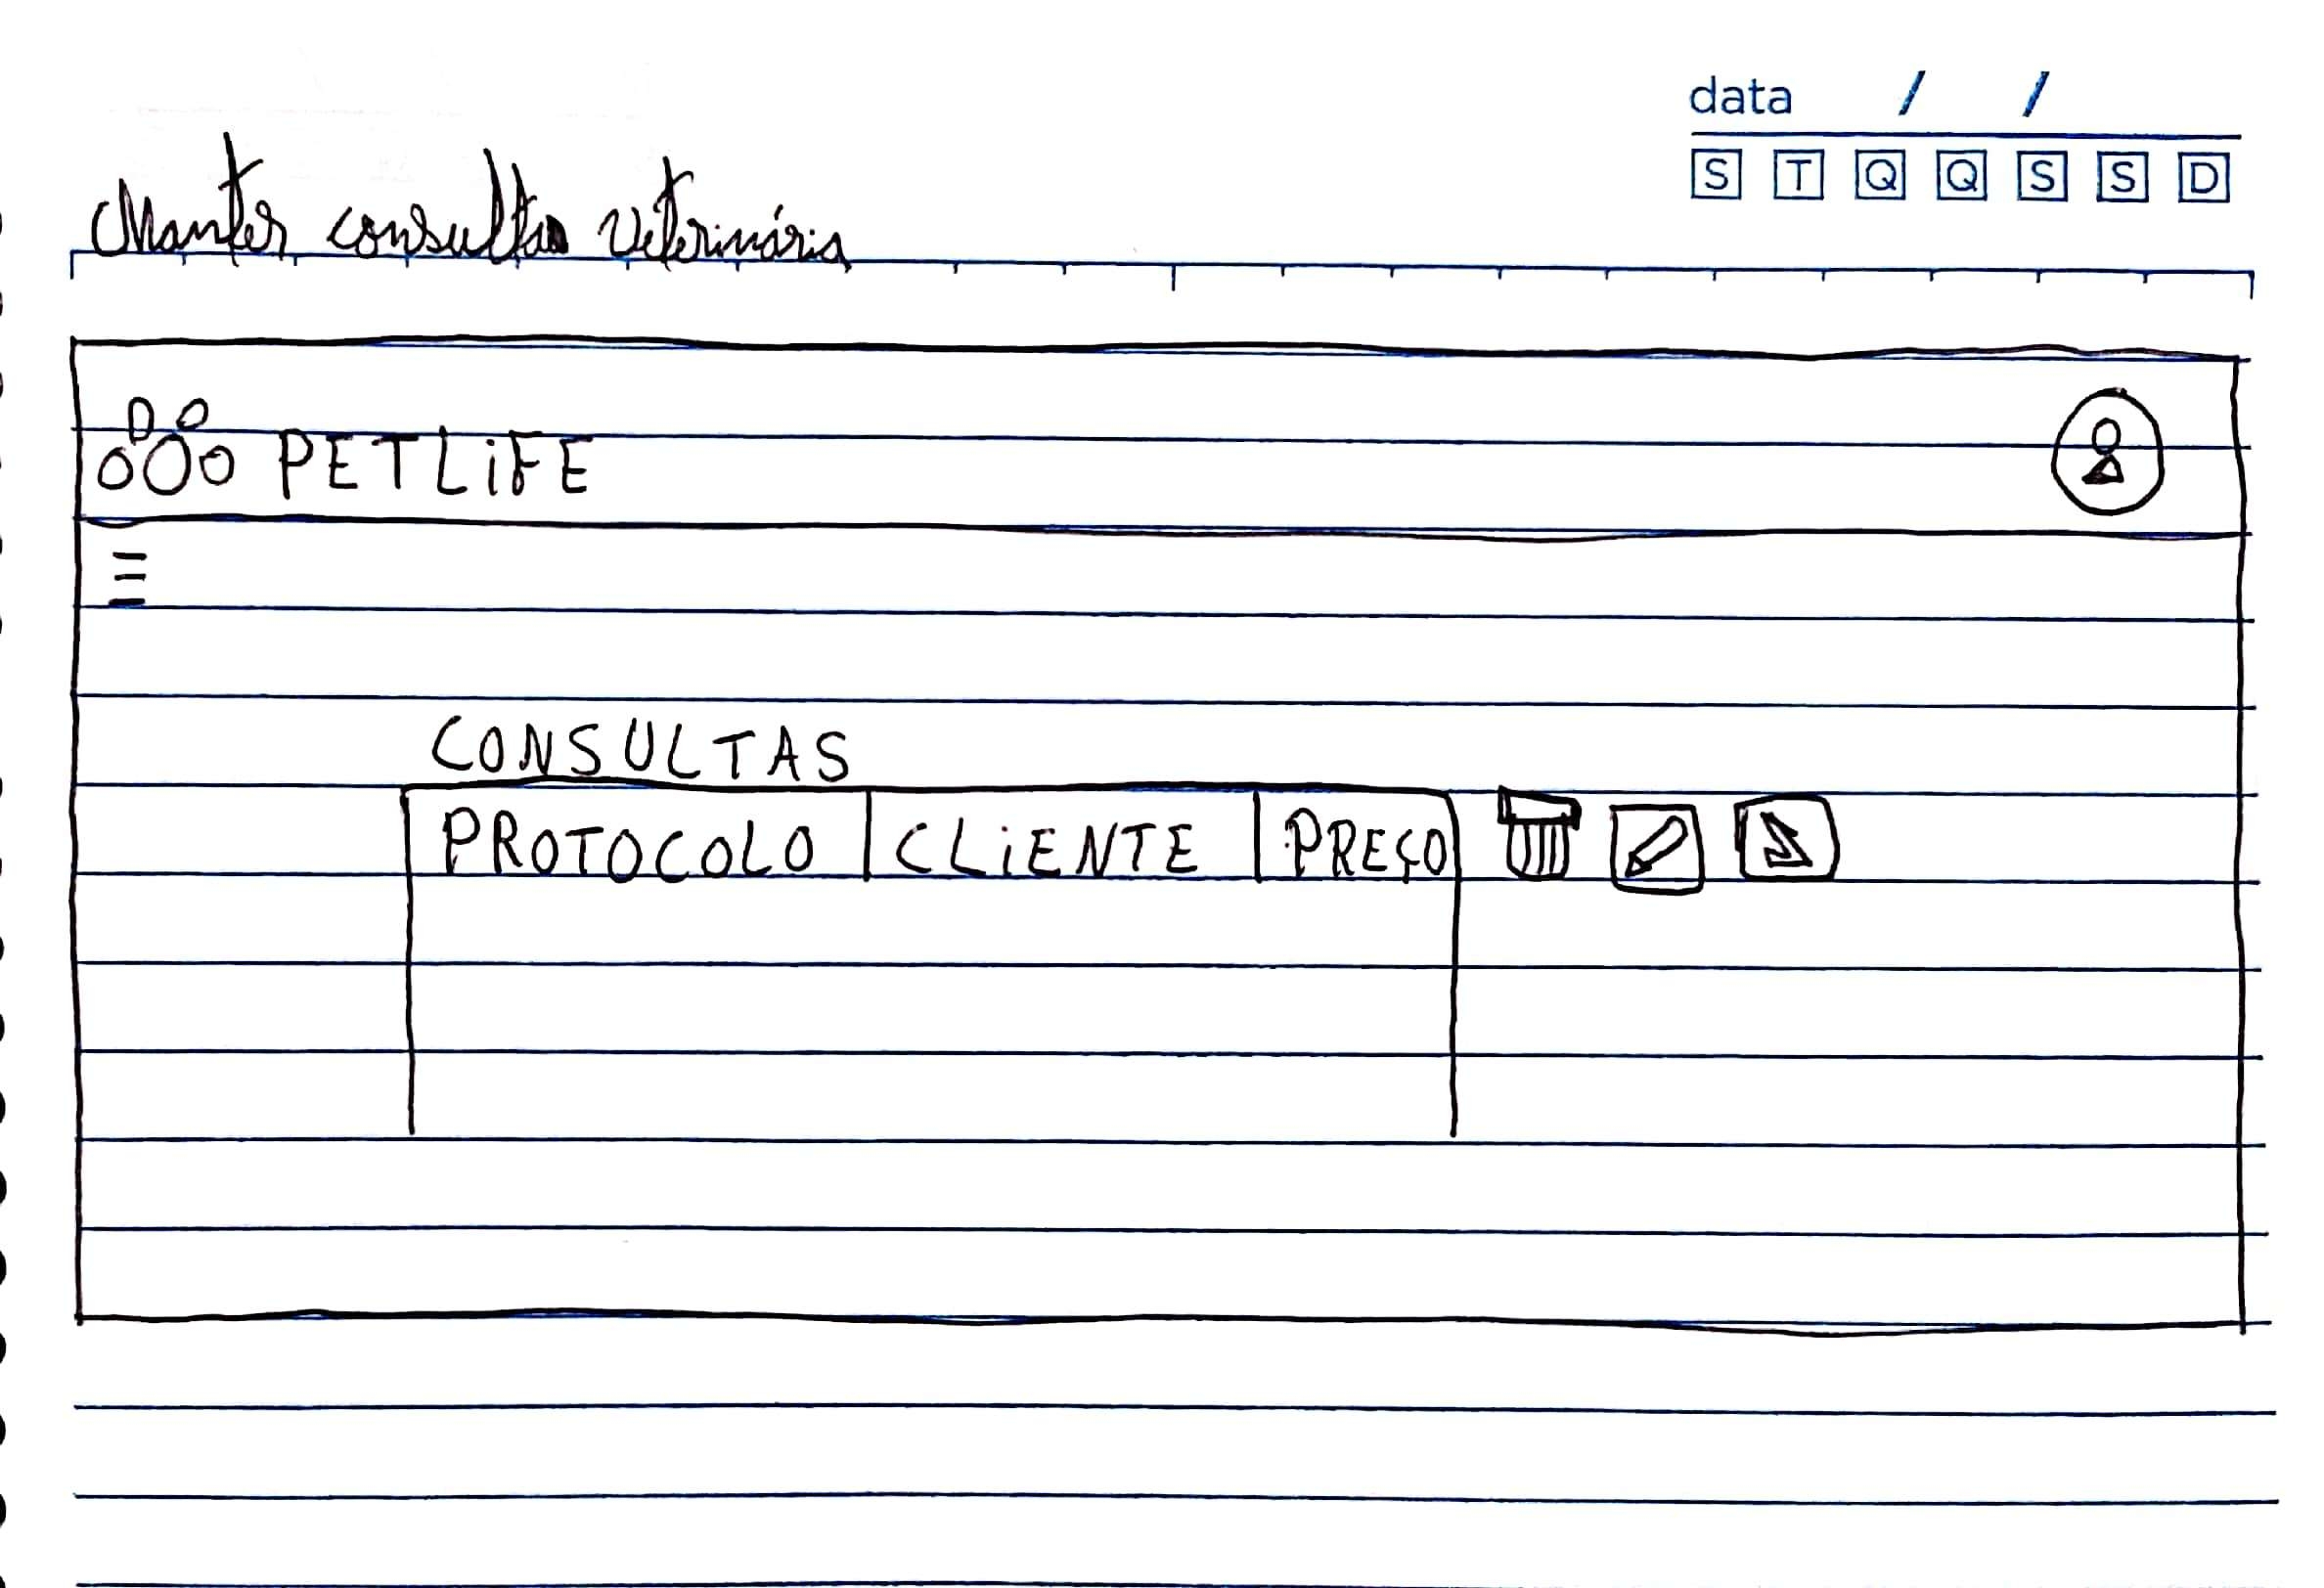 data / /
S T Q Q S S D
Manter consulta veterinária
PETLiFE
CONSULTAS
PROTOCOLO CLiENTE PREÇO